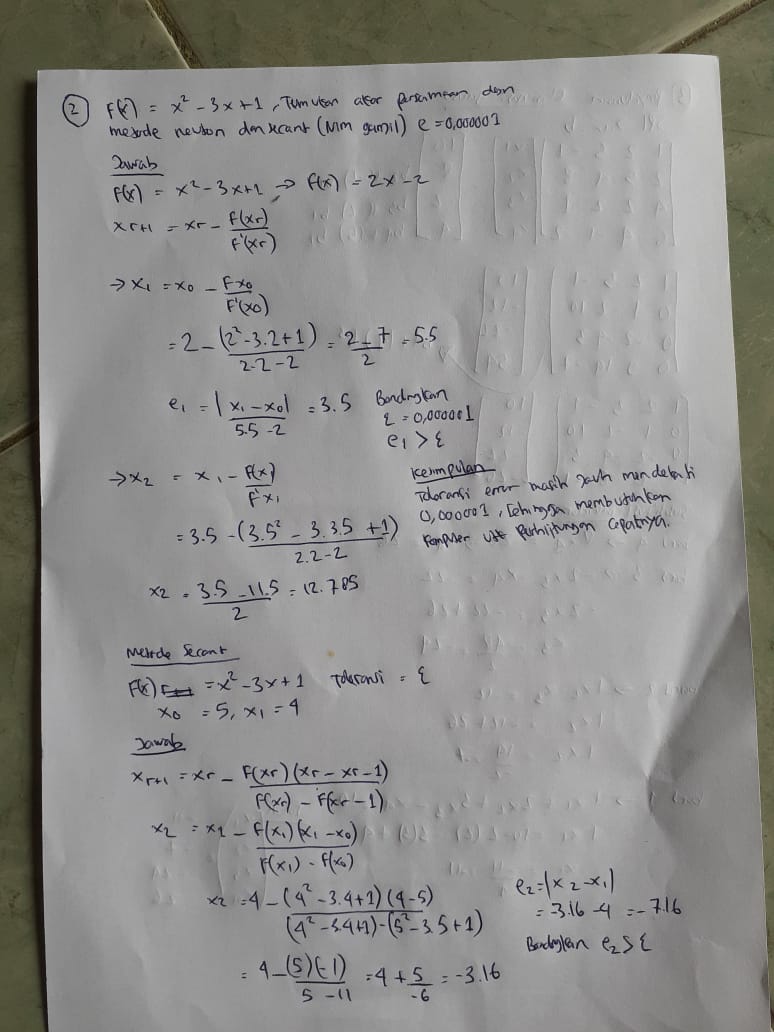 ② F(x) = x² - 3x + 1, Temukan akar persamaan dgn
metode newton dan secant (Nim ganjil) e = 0,000001
Jawab
F(x) = x² - 3x + 1 → f(x) = 2x - 2
xr+1 = xr - F(xr) / F'(xr)
→ x1 = x0 - Fx0 / F'(x0)
= 2 - (2² - 3.2 + 1) / 2.2 - 2 = 2 - 7 / 2 = 5.5
e1 = | x1 - x0 | / 5.5 - 2 = 3.5
Bandingkan
ε = 0,000001
e1 > ε
→ x2 = x1 - F(x) / F'x1
= 3.5 - (3.5² - 3.3.5 + 1) / 2.2 - 2
x2 = 3.5 - 11.5 / 2 = 12.785
Kesimpulan
Toleransi error masih jauh mendekati
0,000001, sehingga membutuhkan
komputer utk perhitungan cepatnya.
Metode Secant
F(x) = x² - 3x + 1 Toleransi = ε
x0 = 5, x1 = 4
Jawab
xr+1 = xr - F(xr)(xr - xr-1) / F(xr) - F(xr-1)
x2 = x1 - F(x1)(x1 - x0) / F(x1) - F(x0)
x2 = 4 - (4² - 3.4 + 1)(4 - 5) / (4² - 3.4 + 1) - (5² - 3.5 + 1)
= 4 - (5)(-1) / 5 - 11 = 4 + 5 / -6 = -3.16
e2 = | x2 - x1 |
= -3.16 - 4 = -7.16
Bandingkan e2 ≤ ε